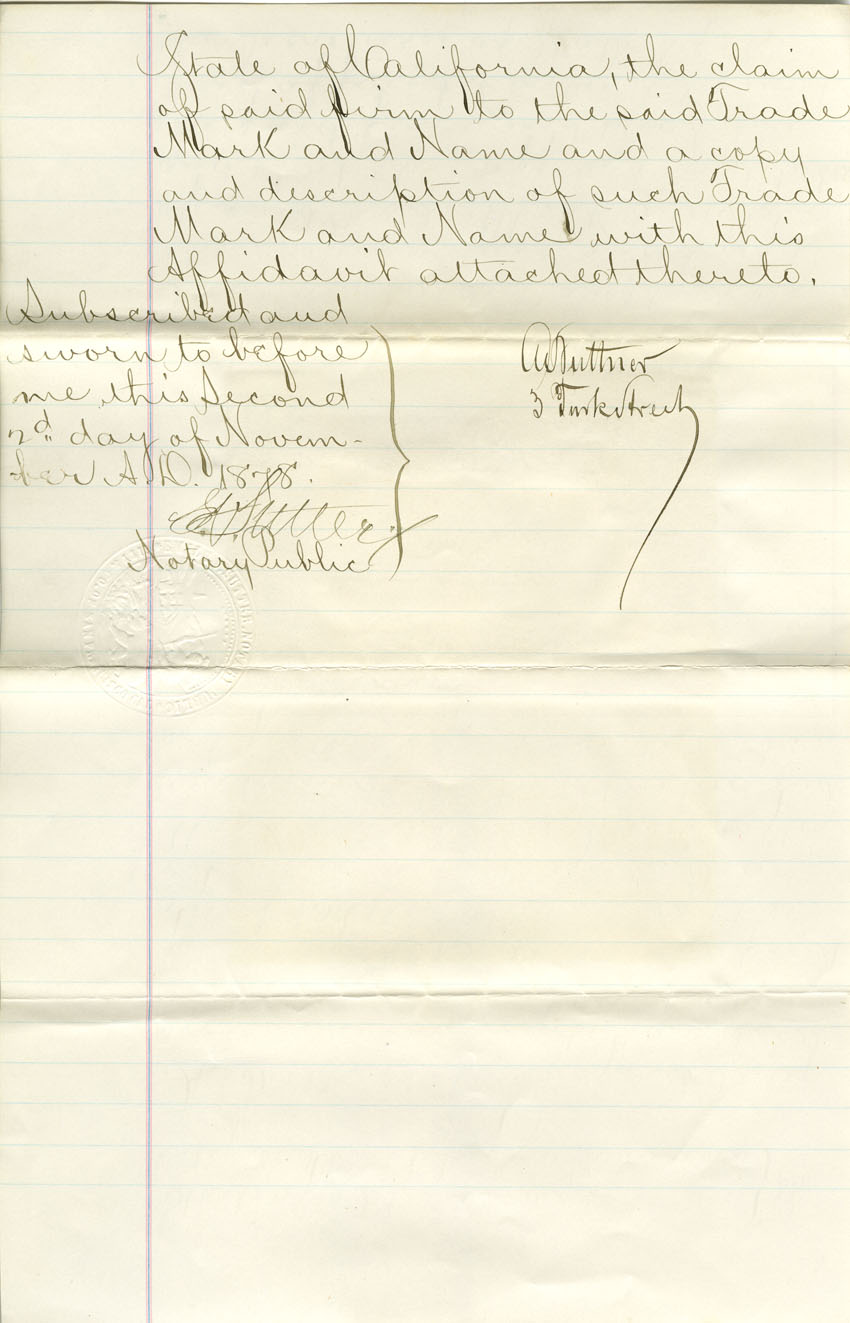 State of California, the claim
of said firm to the said Trade
Mark and Name and a copy
and description of such Trade
Mark and Name with this
Affidavit attached thereto.
Subscribed and
sworn to before
me, this Second
2d. day of Novem-
ber A.D. 1878.
Notary Public
3 Turk Street